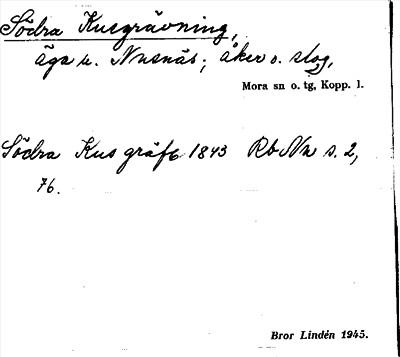 Södra Kusgrävning,
äga u. Nusnäs; åker o. slog,
Mora sn o. tg, Kopp. l.
Södra Kus gräft 1843 Rb Nn s. 2,
76.
Bror Lindén 1945.